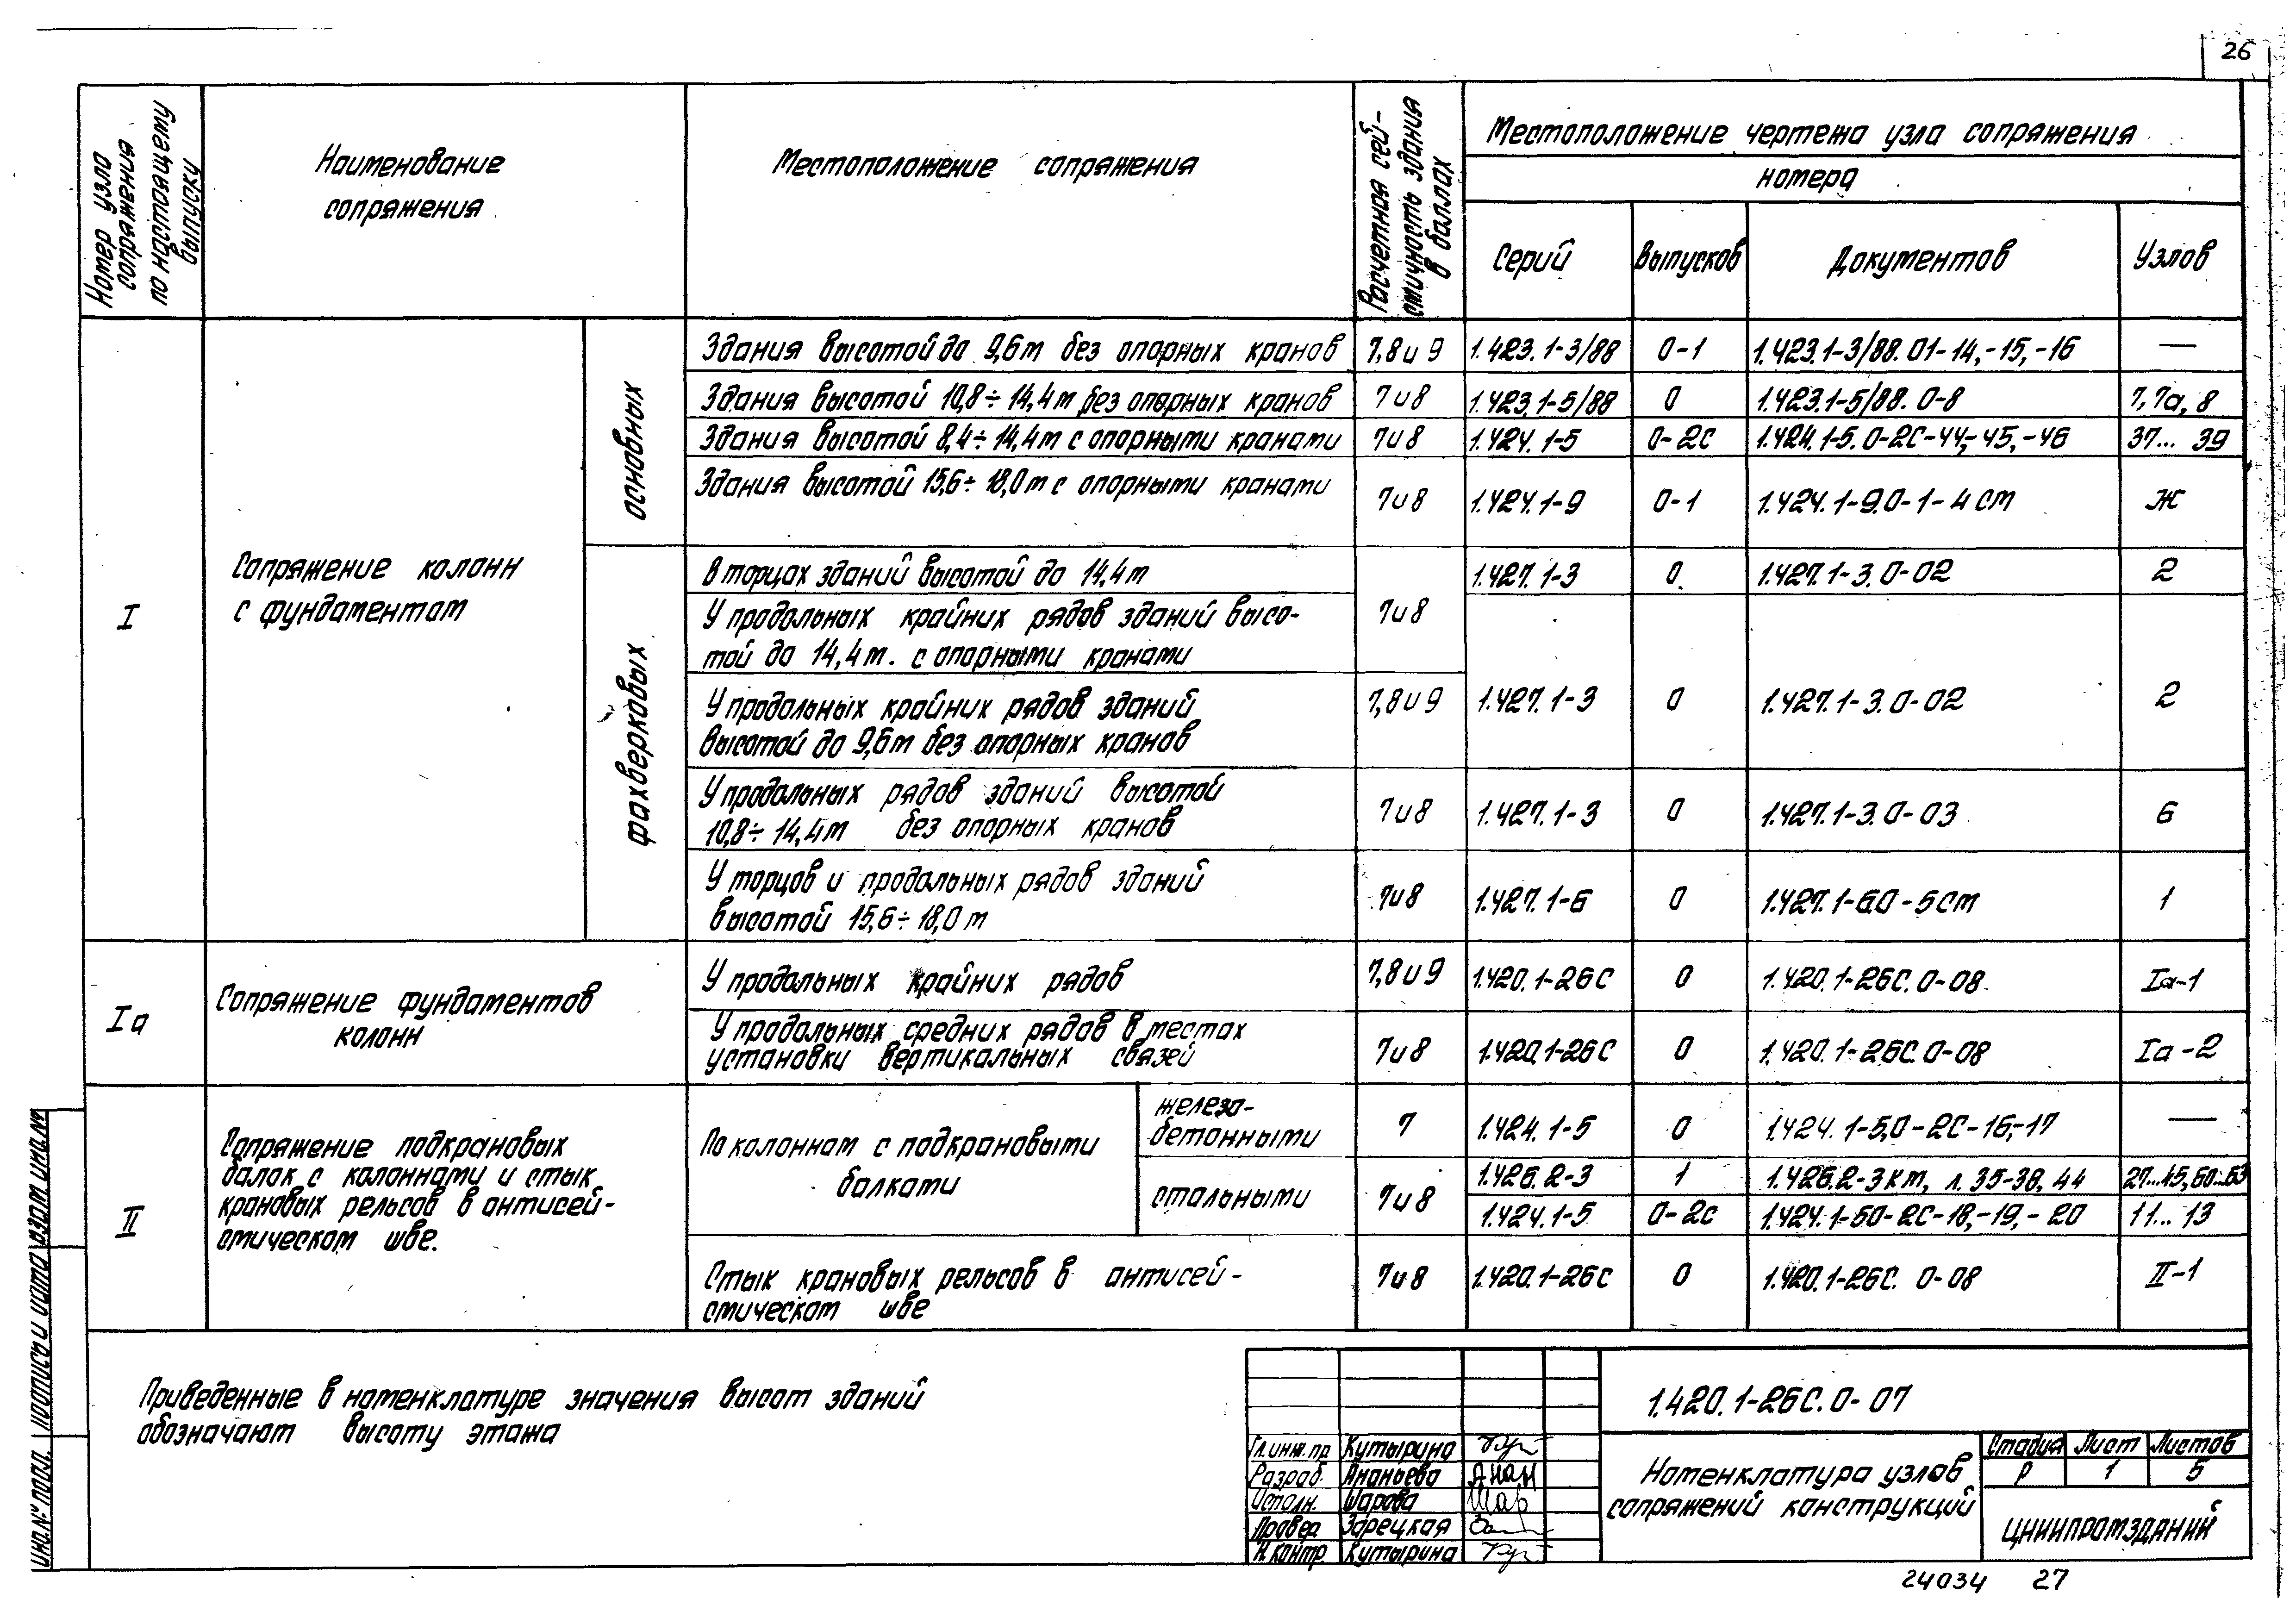 26
Номер узла
сопряжения
по настоящему
выпуску
Наименование
сопряжения
Местоположение сопряжения
Расчетная сей-
смичность здания
в баллах
Местоположение чертежа узла сопряжения
номера
Серий
Выпусков
Документов
Узлов
I
Сопряжение колонн
с фундаментом
основных
Здания высотой до 9,6м без опорных кранов 7,8 и 9 1.423.1-3/88 0-1 1.423.1-3/88.01-14,-15,-16 —
Здания высотой 10,8÷14,4м без опорных кранов 7 и 8 1.423.1-5/88 0 1.423.1-5/88.0-8 7,7а,8
Здания высотой 8,4÷14,4м с опорными кранами 7 и 8 1.424.1-5 0-2С 1.424.1-5.0-2С-44,-45,-46 37...39
Здания высотой 15,6÷18,0м с опорными кранами 7 и 8 1.424.1-9 0-1 1.424.1-9.0-1-4 СМ Ж
фахверковых
В торцах зданий высотой до 14,4м 1.427.1-3 0 1.427.1-3.0-02 2
У продольных крайних рядов зданий высо- 7 и 8
той до 14,4м. с опорными кранами
У продольных крайних рядов зданий 7,8 и 9 1.427.1-3 0 1.427.1-3.0-02 2
высотой до 9,6м без опорных кранов
У продольных рядов зданий высотой
10,8÷14,4м без опорных кранов 7 и 8 1.427.1-3 0 1.427.1-3.0-03 6
У торцов и продольных рядов зданий
высотой 15,6÷18,0м 7 и 8 1.427.1-6 0 1.427.1-6.0-5СМ 1
Iа
Сопряжение фундаментов
колонн
У продольных крайних рядов 7,8 и 9 1.420.1-26С 0 1.420.1-26С.0-08 Iа-1
У продольных средних рядов в местах
установки вертикальных связей 7 и 8 1.420.1-26С 0 1.420.1-26С.0-08 Iа-2
II
Сопряжение подкрановых
балок с колоннами и стык
крановых рельсов в антисей-
смическом шве.
По колоннам с подкрановыми
балками
железо-
бетонными 7 1.424.1-5 0 1.424.1-5,0-2С-16,-17 —
стальными 7 и 8
1.426.2-3 1 1.426.2-3 КМ, л. 35-38, 44
1.424.1-5 0-2с 1.424.1-50-2С-18,-19,-20 11...13
Стык крановых рельсов в антисей-
смическом шве 7 и 8 1.420.1-26С 0 1.420.1-26С.0-08 II-1
Приведенные в номенклатуре значения высот зданий
обозначают высоту этажа
Инв.№ подл. Подпись и дата Взам инв.№
1.420.1-26С.0-07
Гл.инж.пр Кутырина
Разраб. Ананьева
Исполн. Шарова
Провер Зарецкая
Н.контр Кутырина
Номенклатура узлов
сопряжений конструкций
Стадия Лист Листов
Р 1 5
ЦНИИПРОМЗДАНИЙ
24034 27